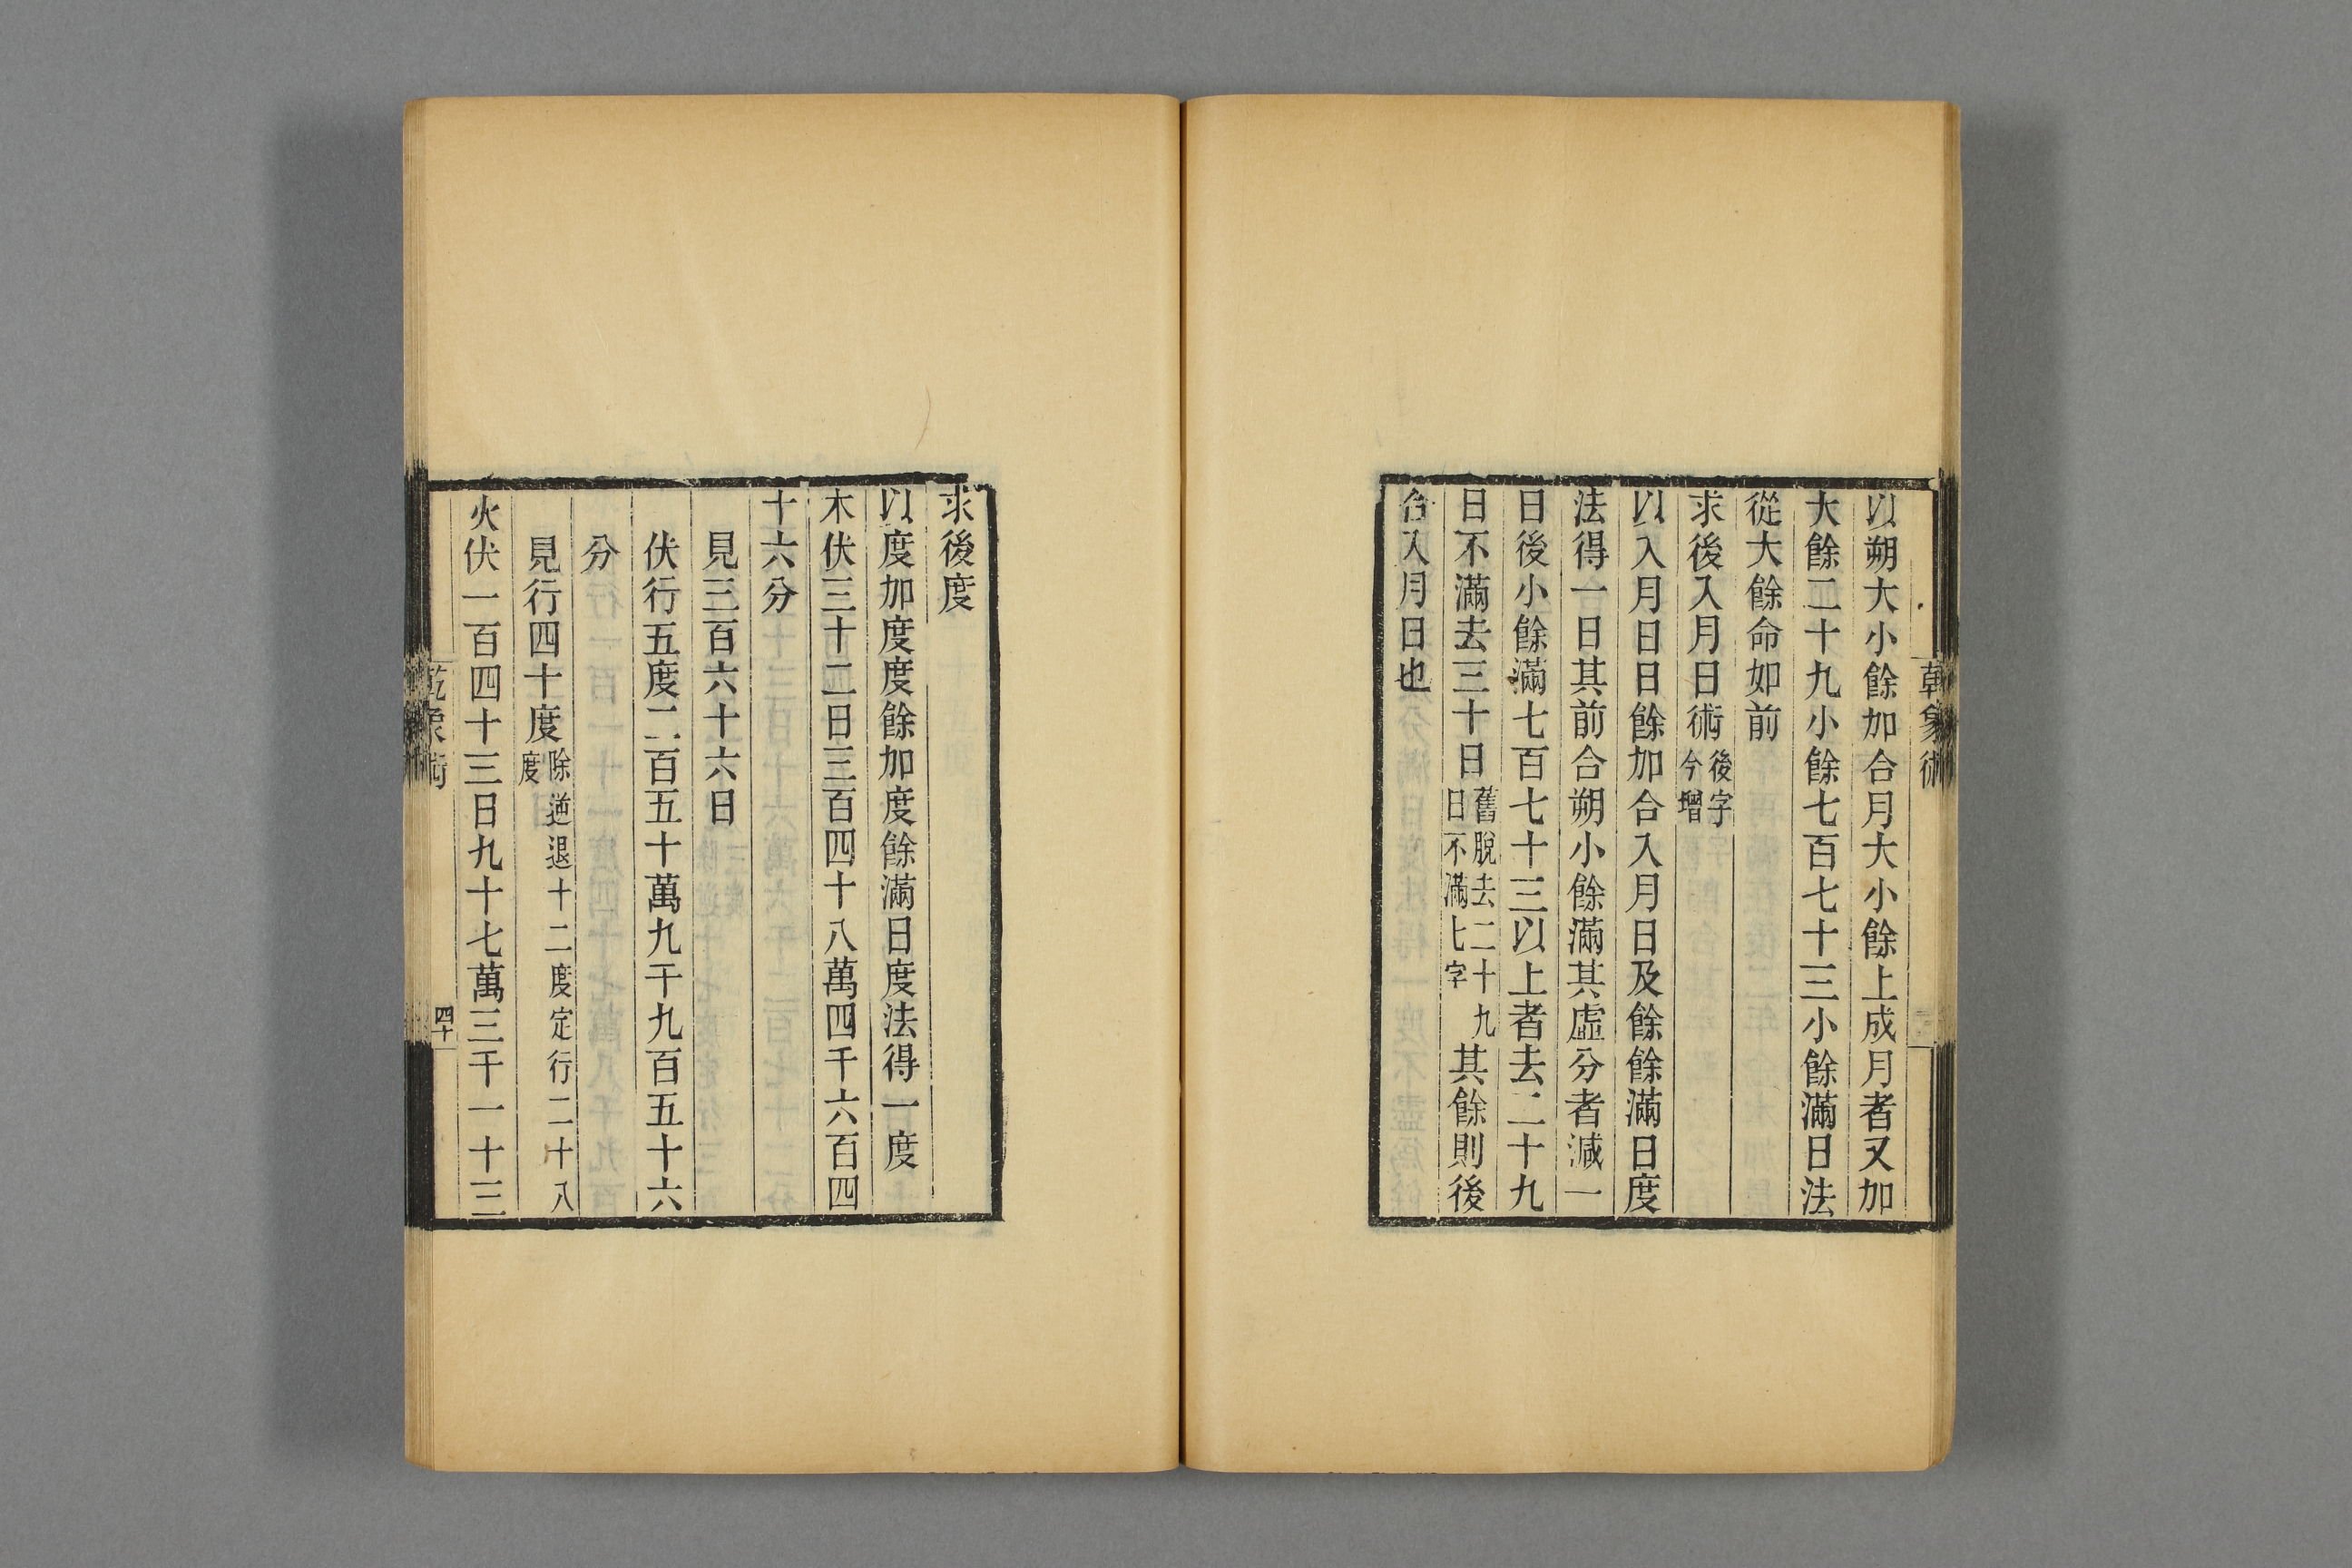 以朔大小餘加合月大小餘上成月者又加
大餘二十九小餘七百七十三小餘滿日法
從大餘命如前
求後入月日術後字今增
以入月日日餘加合入月日及餘餘滿日度
法得一日其前合朔小餘滿其虛分者減一
日後小餘滿七百七十三以上者去二十九
日不滿去三十日舊脫去二十九日不滿七字其餘則後
合入月日也
乾象術
求後度
以度加度度餘加度餘滿日度法得一度
木伏三十二日三百四十八萬四千六百四
十六分
見三百六十六日
伏行五度二百五十萬九千九百五十六
分
見行四十度除逆退十二度定行二十八度
火伏一百四十三日九十七萬三千一十三
乾象術
四十